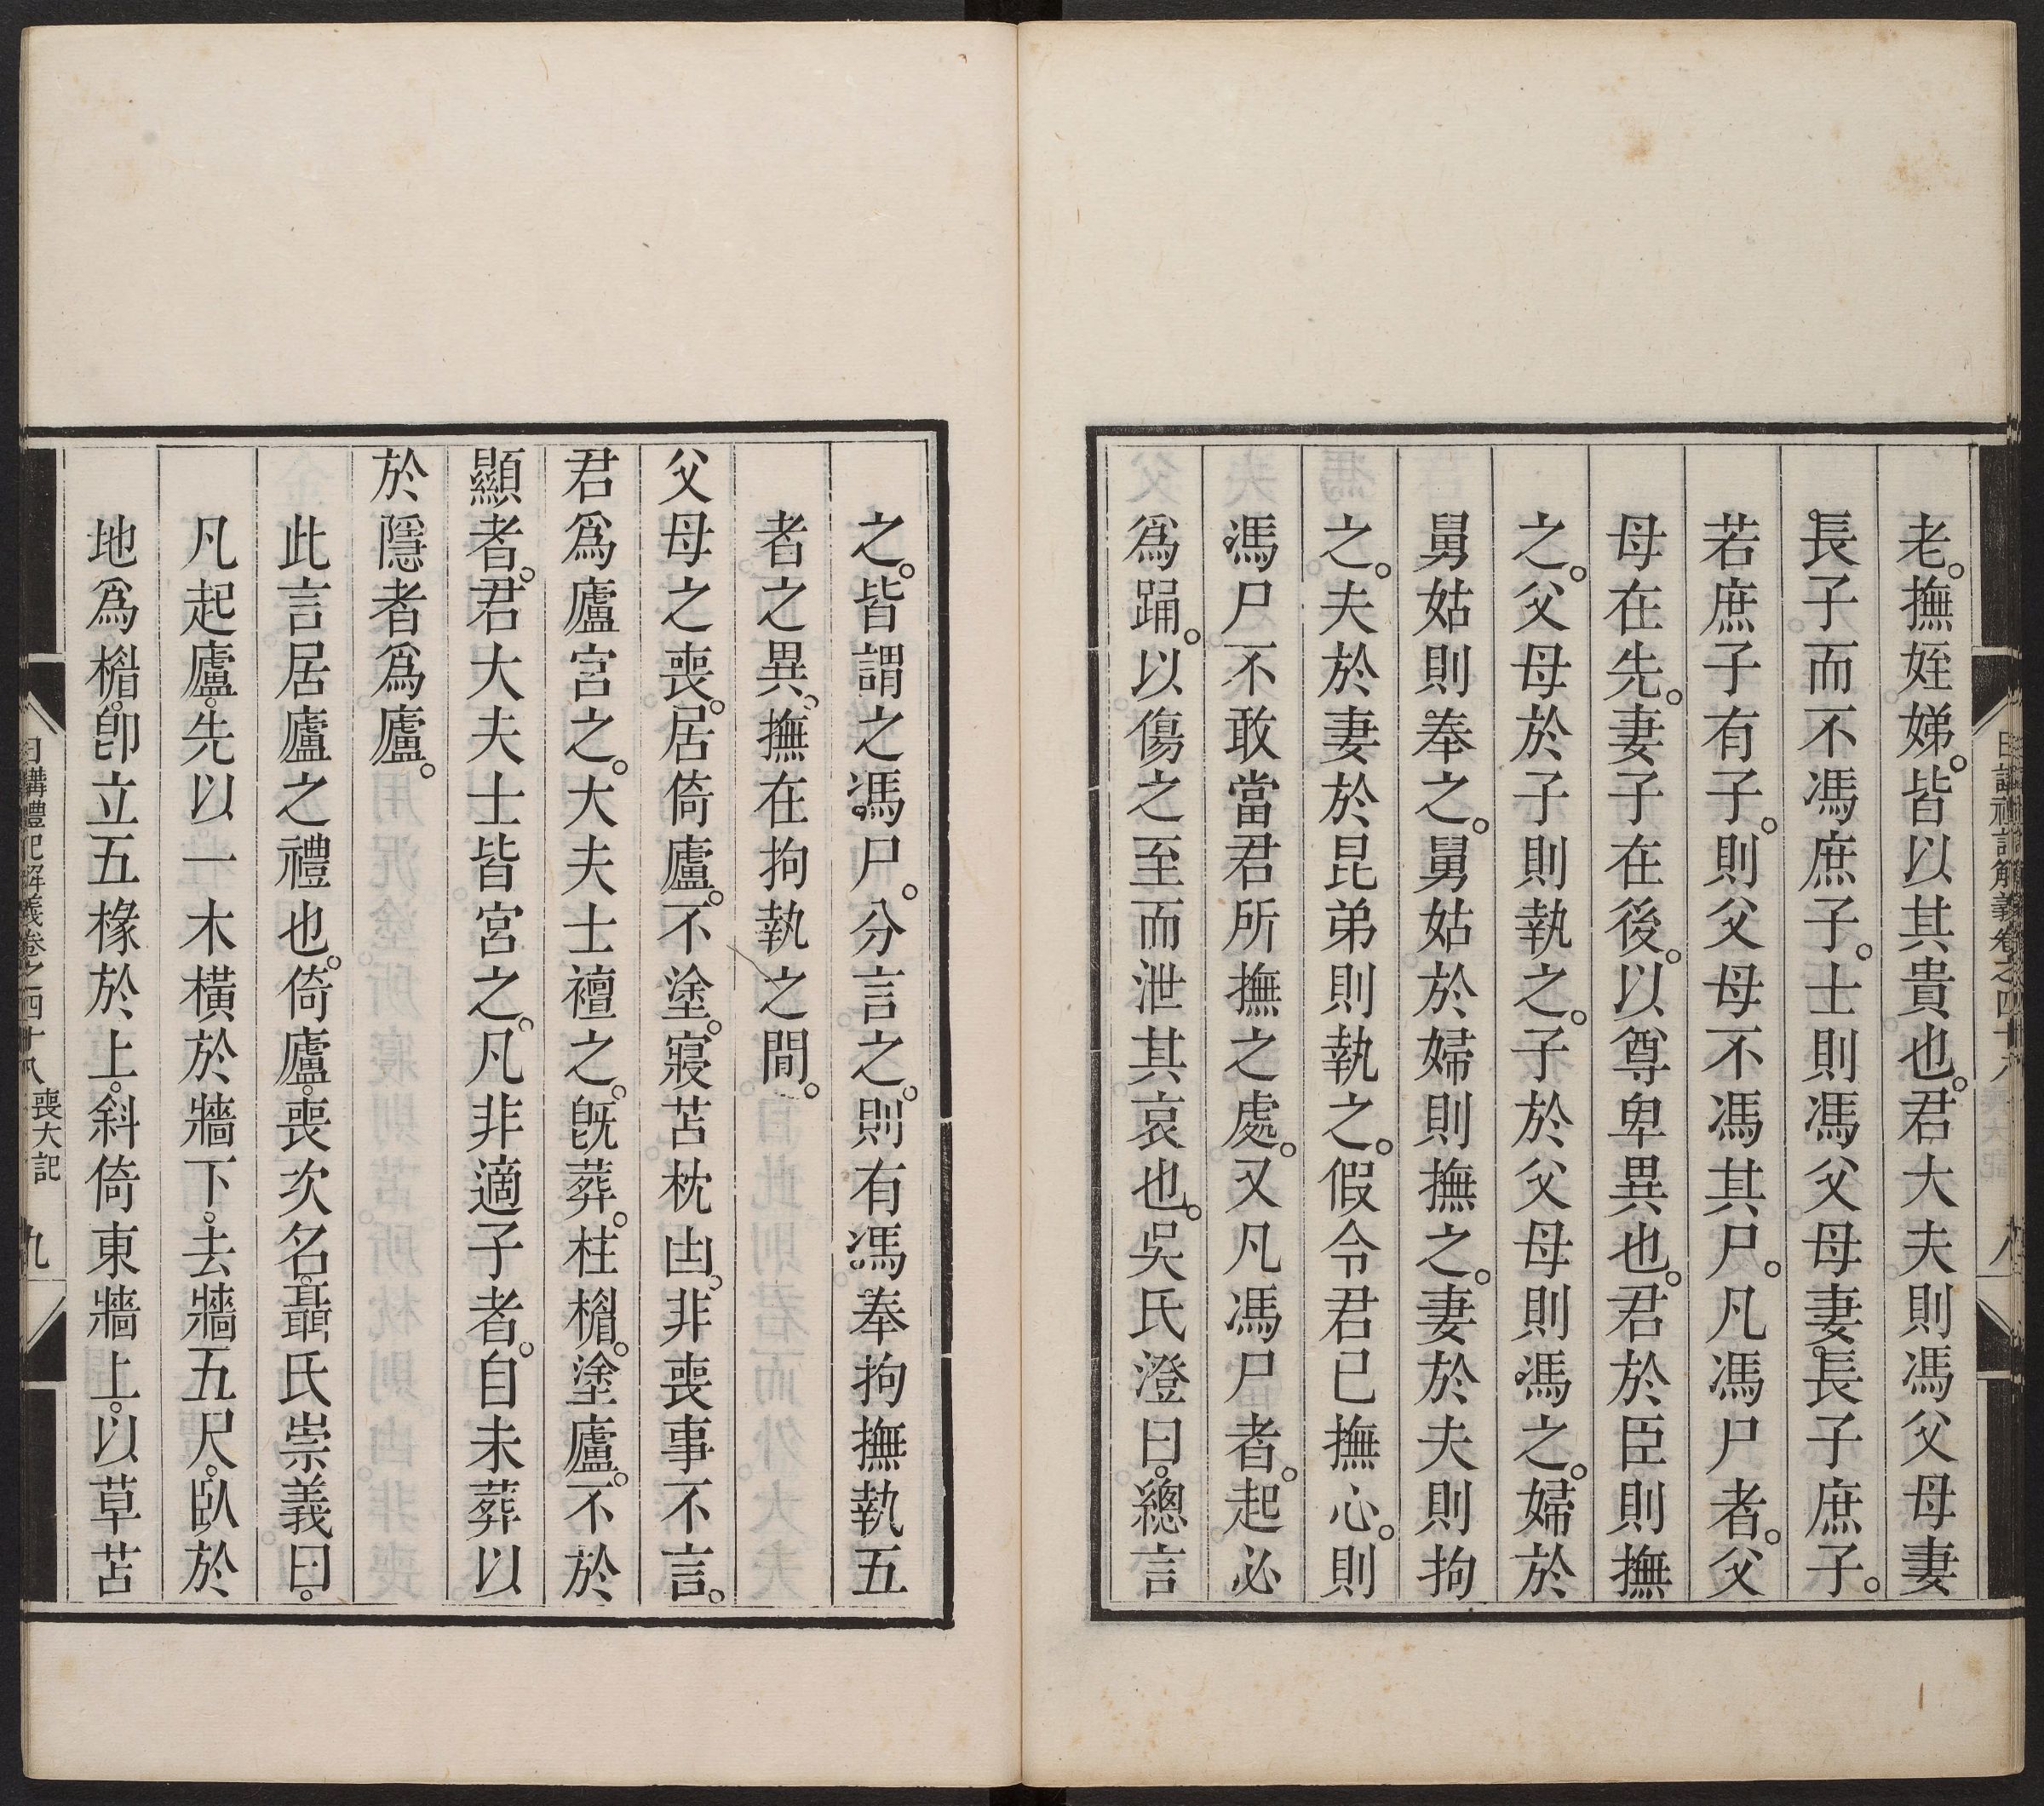 老。撫姪娣。皆以其貴也。君大夫則馮父母妻
長子。而不馮庶子。士則馮父母妻。長子庶子。
若庶子有子。則父母不馮其尸。凡馮尸者。父
母在先。妻子在後。以尊卑異也。君於臣則撫
之。父母於子則執之。子於父母則馮之。婦於
舅姑則奉之。舅姑於婦則撫之。妻於夫則拘
之。夫於妻於昆弟則執之。假令君已撫心。則
馮尸不敢當君所撫之處。又凡馮尸者。起必
爲踊。以傷之至而泄其哀也。吳氏澄曰。總言
之。皆謂之馮尸。分言之。則有馮奉拘撫執五
者之異。撫在拘執之間。
父母之喪。居倚廬。不塗。寢苫枕凷。非喪事不言。
君爲廬宮之。大夫士襢之。旣葬。柱楣。塗廬。不於
顯者。君大夫士皆宮之。凡非適子者。自未葬以
於隱者爲廬。
此言居廬之禮也。倚廬。喪次名。聶氏崇義曰。
凡起廬。先以一木橫於牆下。去牆五尺。臥於
地爲楣。卽立五椽於上。斜倚東牆上。以草苫
日講禮記解義卷之四十八 喪大記 九